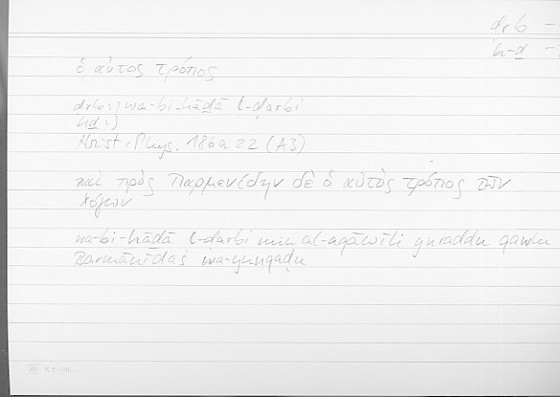 drb –
h-d –
ὁ αὐτὸς τρόπος
drb:) wa-bi-hāḏā l-ḍarbi
hḏ:)
Arist. Phys. 186a22 (A3)
καὶ πρὸς Παρμενίδην δὲ ὁ αὐτὸς τρόπος τῶν
λόγων
wa-bi-hāḏā l-ḍarbi min al-aqāwīli yuraddu qawlu
Barmānīdas wa-yunqaḍu